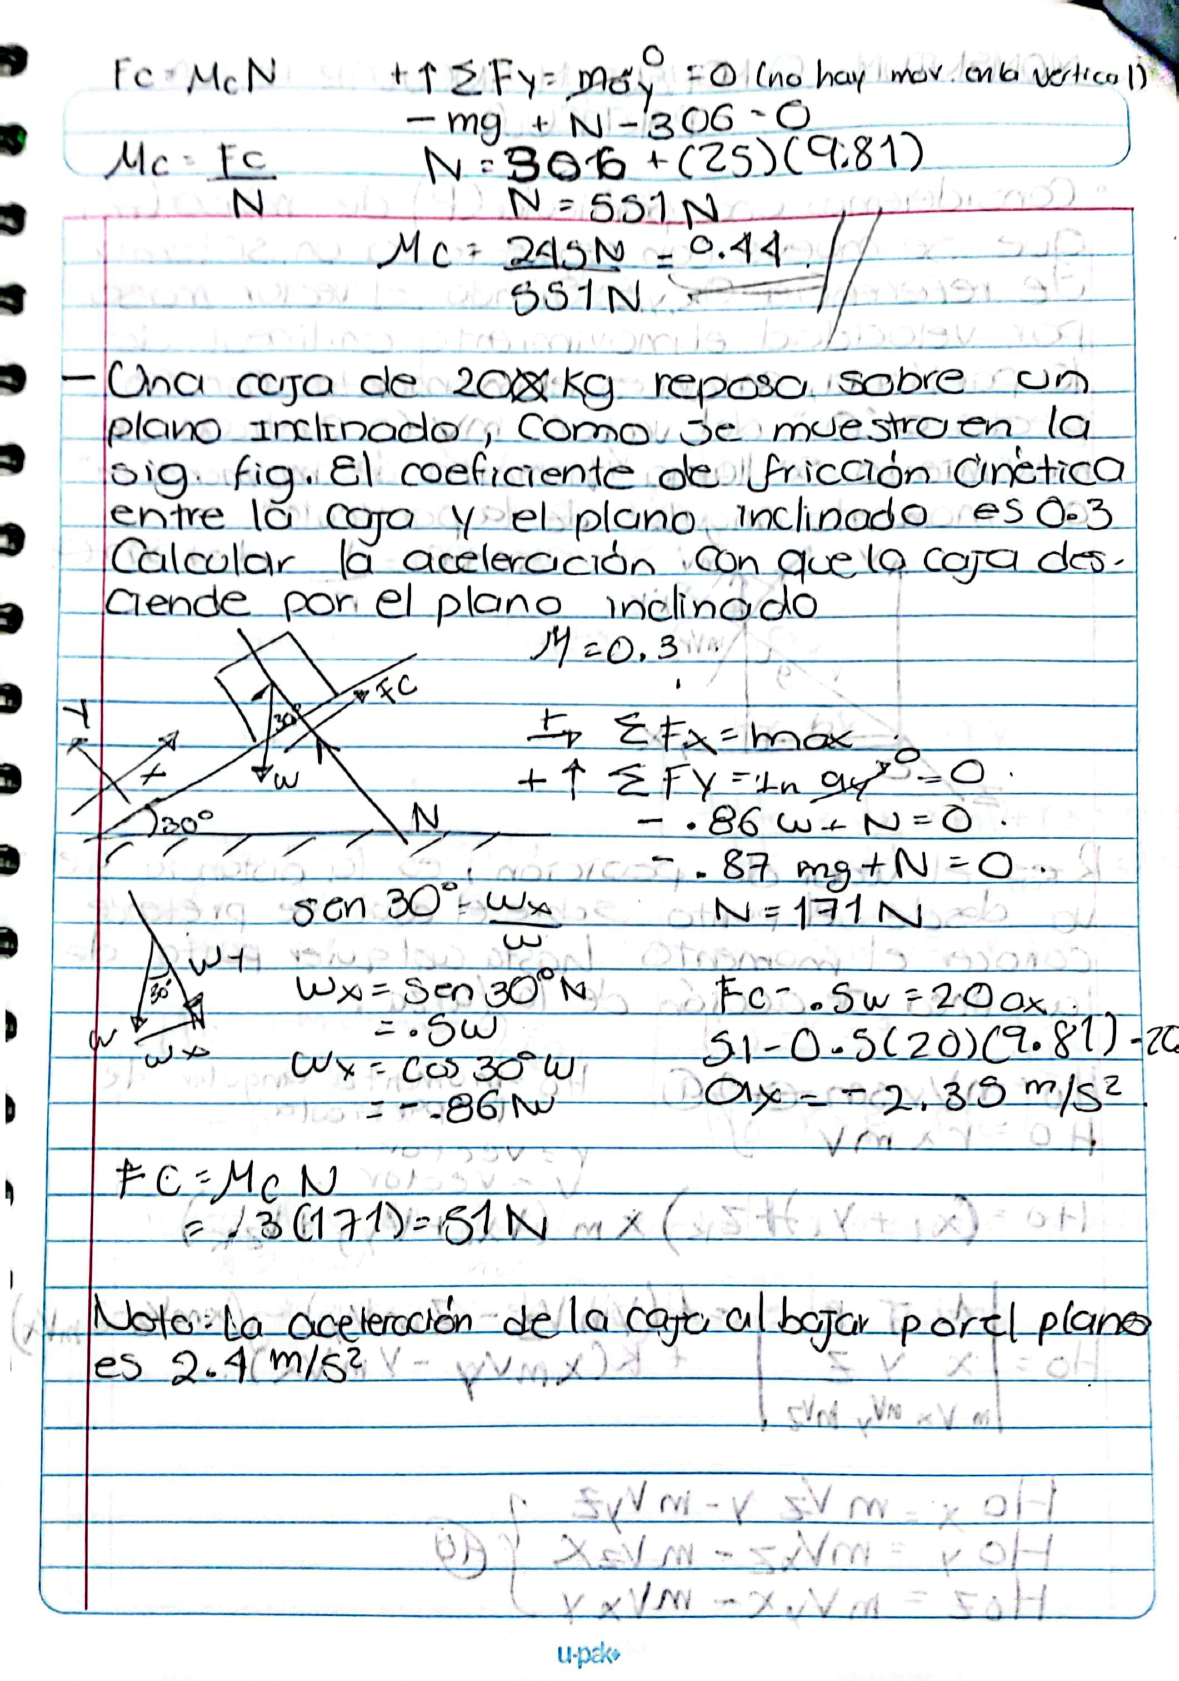 Fc = Mc N    + ↑ Σ Fy = may 0 = 0 (no hay mov. en la vertical)
- mg + N - 306 = 0
Mc = Fc / N    N = 306 + (25)(9.81)
N = 551 N
Mc = 245N / 551N = 0.44
- Una caja de 20 kg reposa sobre un
plano inclinado, como se muestra en la
sig. fig. El coeficiente de fricción cinética
entre la caja y el plano inclinado es 0.3
Calcular la aceleración con que la caja des-
ciende por el plano inclinado
M = 0.3
Y    x    30°    FC    W    30°    N
+→ Σ Fx = max
+ ↑ Σ FY = m ay 0 = 0
- .86 w + N = 0
- .87 mg + N = 0
N = 171 N
sen 30° = wx / w
WY    30°    W    Wx
Wx = sen 30° N
= .5w
Wx = cos 30° w
= -.86 N
Fc - .5w = 20 ax
51 - 0.5(20)(9.81) - 20
ax = -2.35 m/s²
FC = Mc N
= .3(171) = 51 N
Nota: La aceleración de la caja al bajar por el plano
es 2.4 m/s²
u·pak